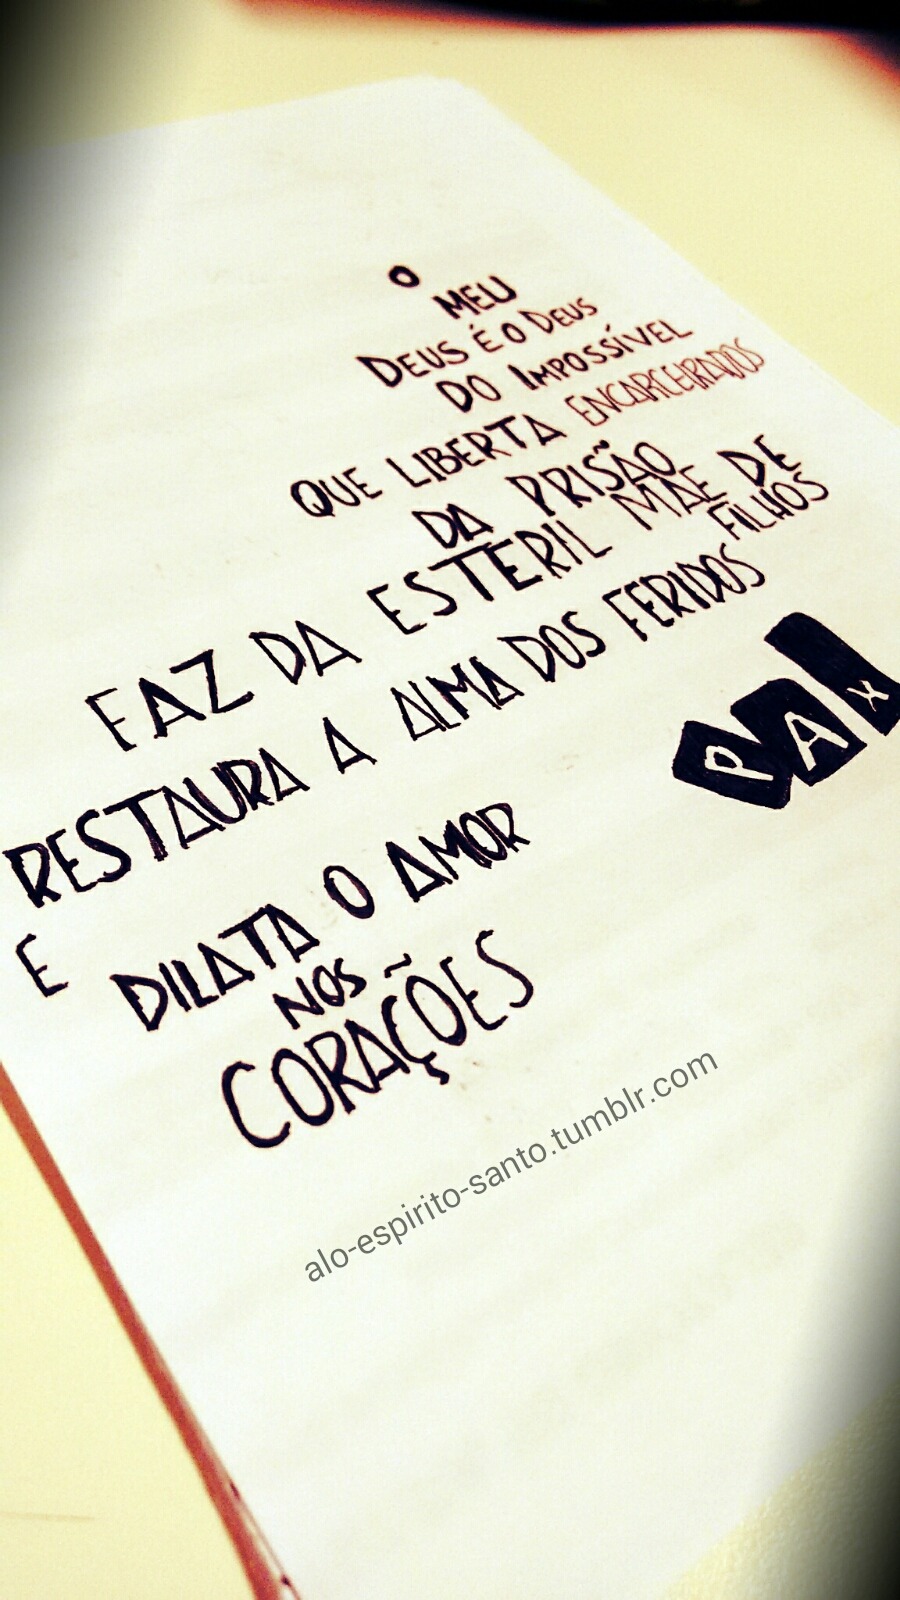 O
MEU
DEUS É O DEUS
DO IMPOSSÍVEL
QUE LIBERTA ENCARCEIRADOS
DA PRISÃO
FAZ DA ESTERIL MÃE DE
FILHOS
RESTAURA A ALMA DOS FERIDOS
E DILATA O AMOR
NOS
CORAÇÕES
PAX
alo-espirito-santo.tumblr.com